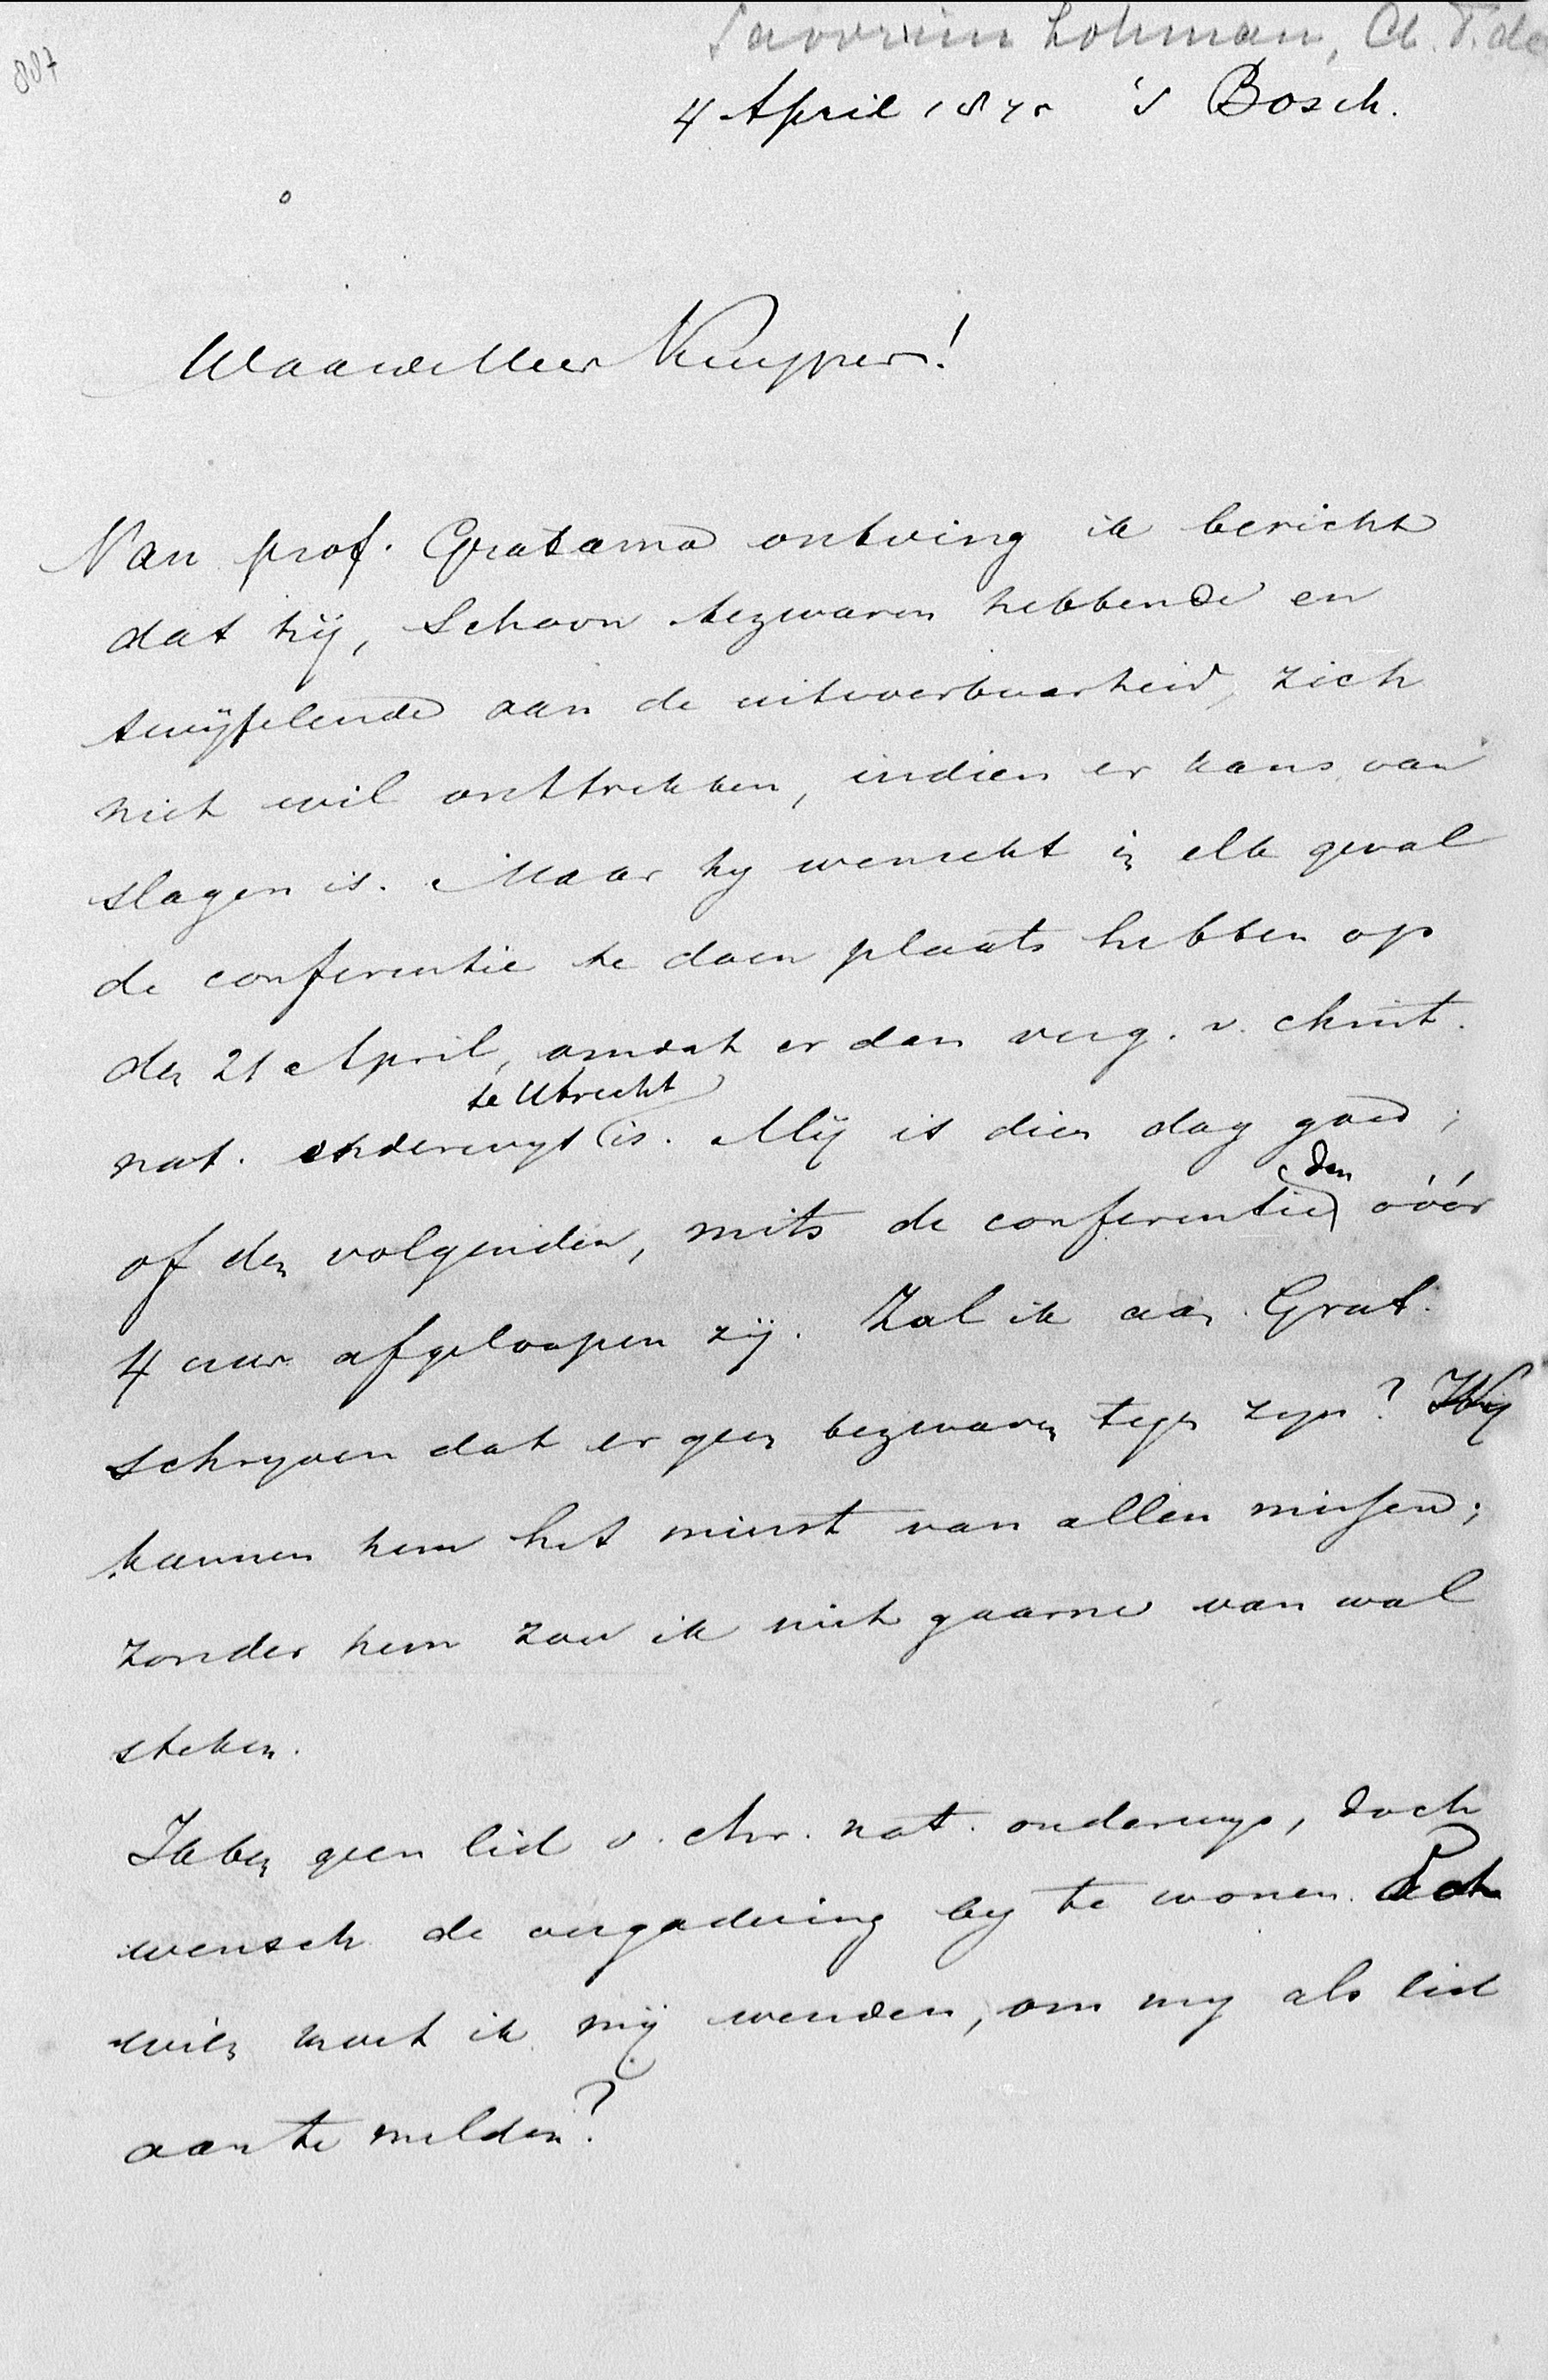 Savornin Lohman, A. F. de
887
4 April 1875 's Bosch.
Waarde Heer Kuyper!
Van prof. Gratama ontving ik bericht
dat hij, schoon bezwaren hebbende en
twijfelende aan de uitvoerbaarheid, zich
niet wil onttrekken, indien er kans van
slagen is. Maar hy wenscht in elk geval
de conferentie te doen plaats hebben op
den 21 April, omdat er dan verg. v. christ.
te Utrecht
nat. onderwys is. Mij is dien dag goed,
den
of den volgenden, mits de conferentie vóór
4 uur afgeloopen zij. Zal ik aan Grat.
schryven dat er geen bezwaren tegen zyn? Wij
kunnen hem het minst van allen missen;
zonder hem zou ik niet gaarne van wal
steken.
Ik ben geen lid v. chr. nat. onderwys, doch
wensch de vergadering by te wonen.
wien moet ik mij wenden, om my als lid
aan te melden?